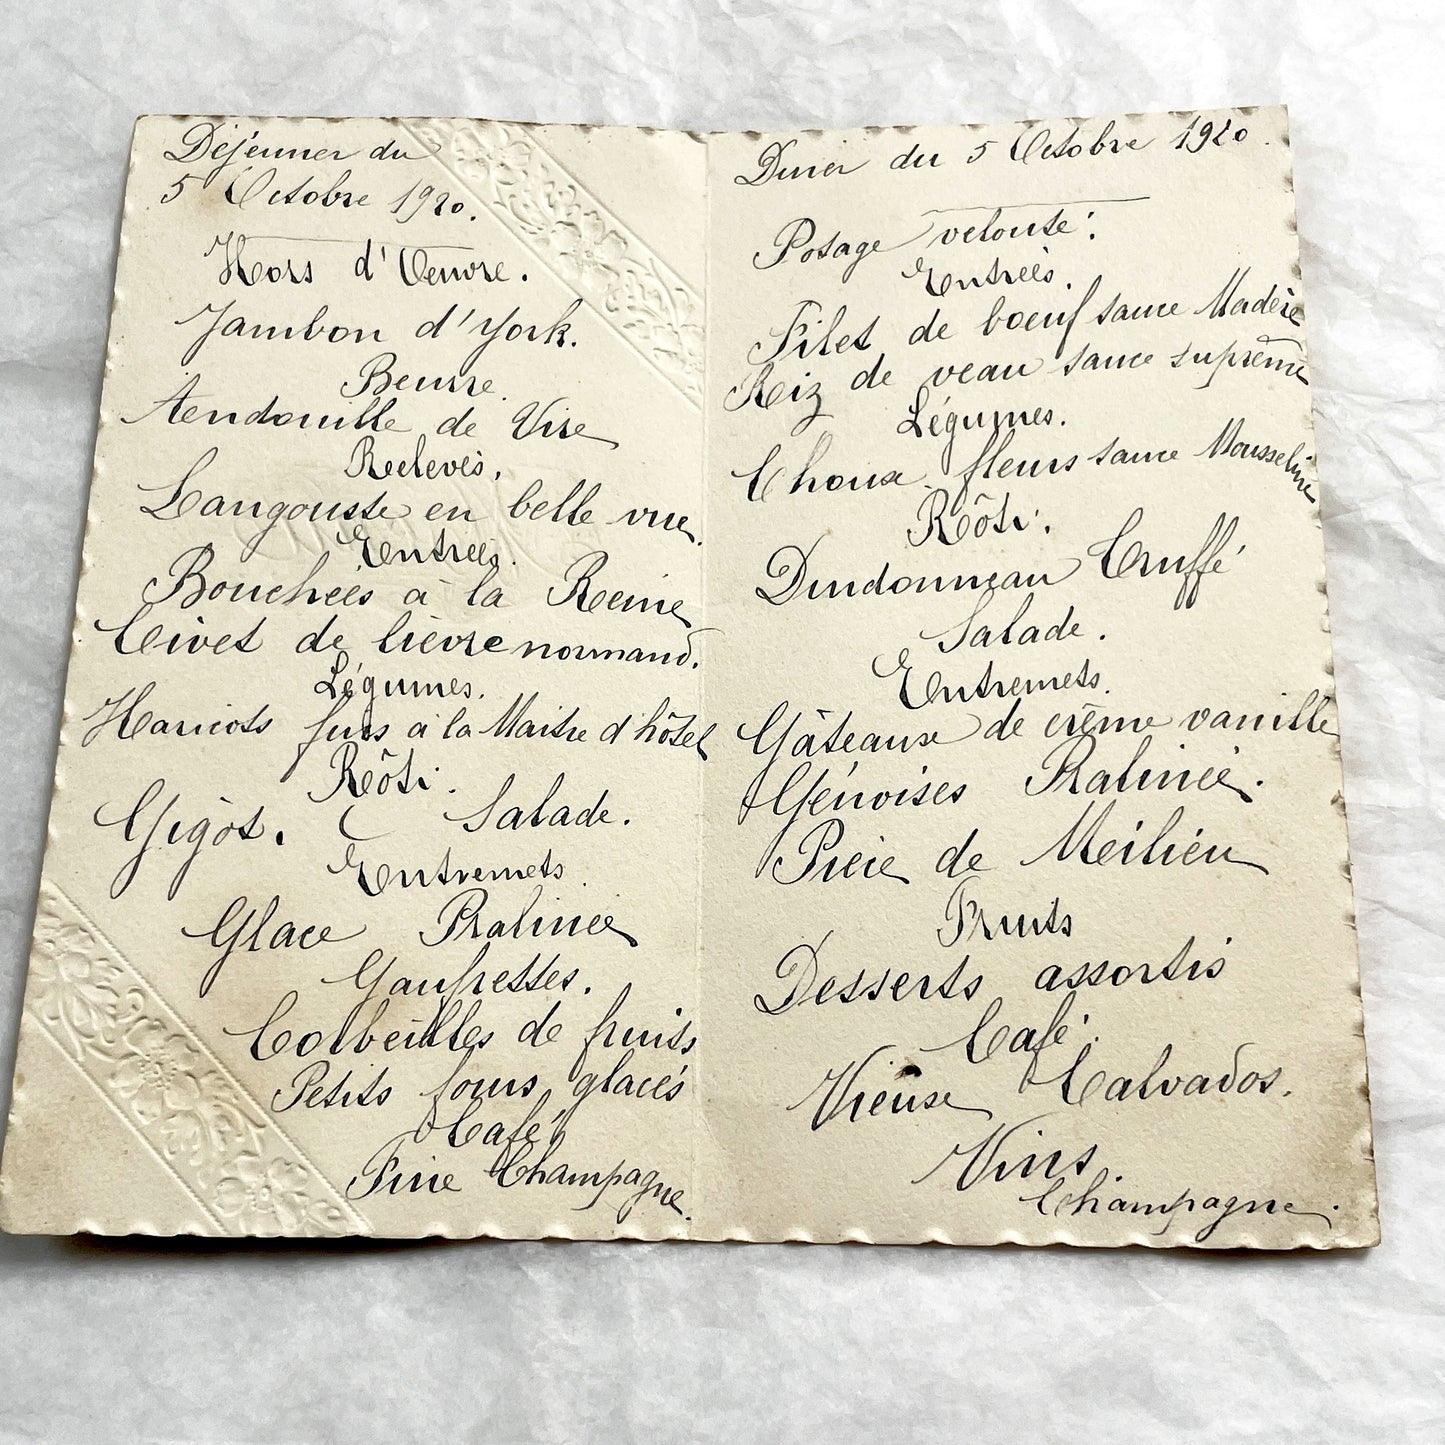 Déjeuner du
5 Octobre 1920.
Hors d'Oeuvre.
Jambon d'York.
Beurre.
Aendouille de Vire
Reelevés.
Langouste en belle vue.
Entrées.
Bouchées à la Reine
Civet de lièvre normand.
Légumes.
Haricots fins à la Maitre d'hôtel
Rôti.
Gigôt. Salade.
Entremets.
Glace Pralinée
Gaufrettes.
Colbeilles de fruits
Petits fours glacés
Café
Fine Champagne.
Diner du 5 Octobre 1920.
Potage velouté.
Entrées.
Filet de boeuf sauce Madère
Reiz de veau sauce suprême
Légumes.
Choux-fleurs sauce Mousseline
Rôti.
Dindonneau Truffé
Salade.
Entremets.
Gâteaux de crème vanille
Génoises Pralinée.
Pièce de Meilieu
Fruits
Desserts assortis
Café.
Vieux Calvados.
Vins.
Champagne.